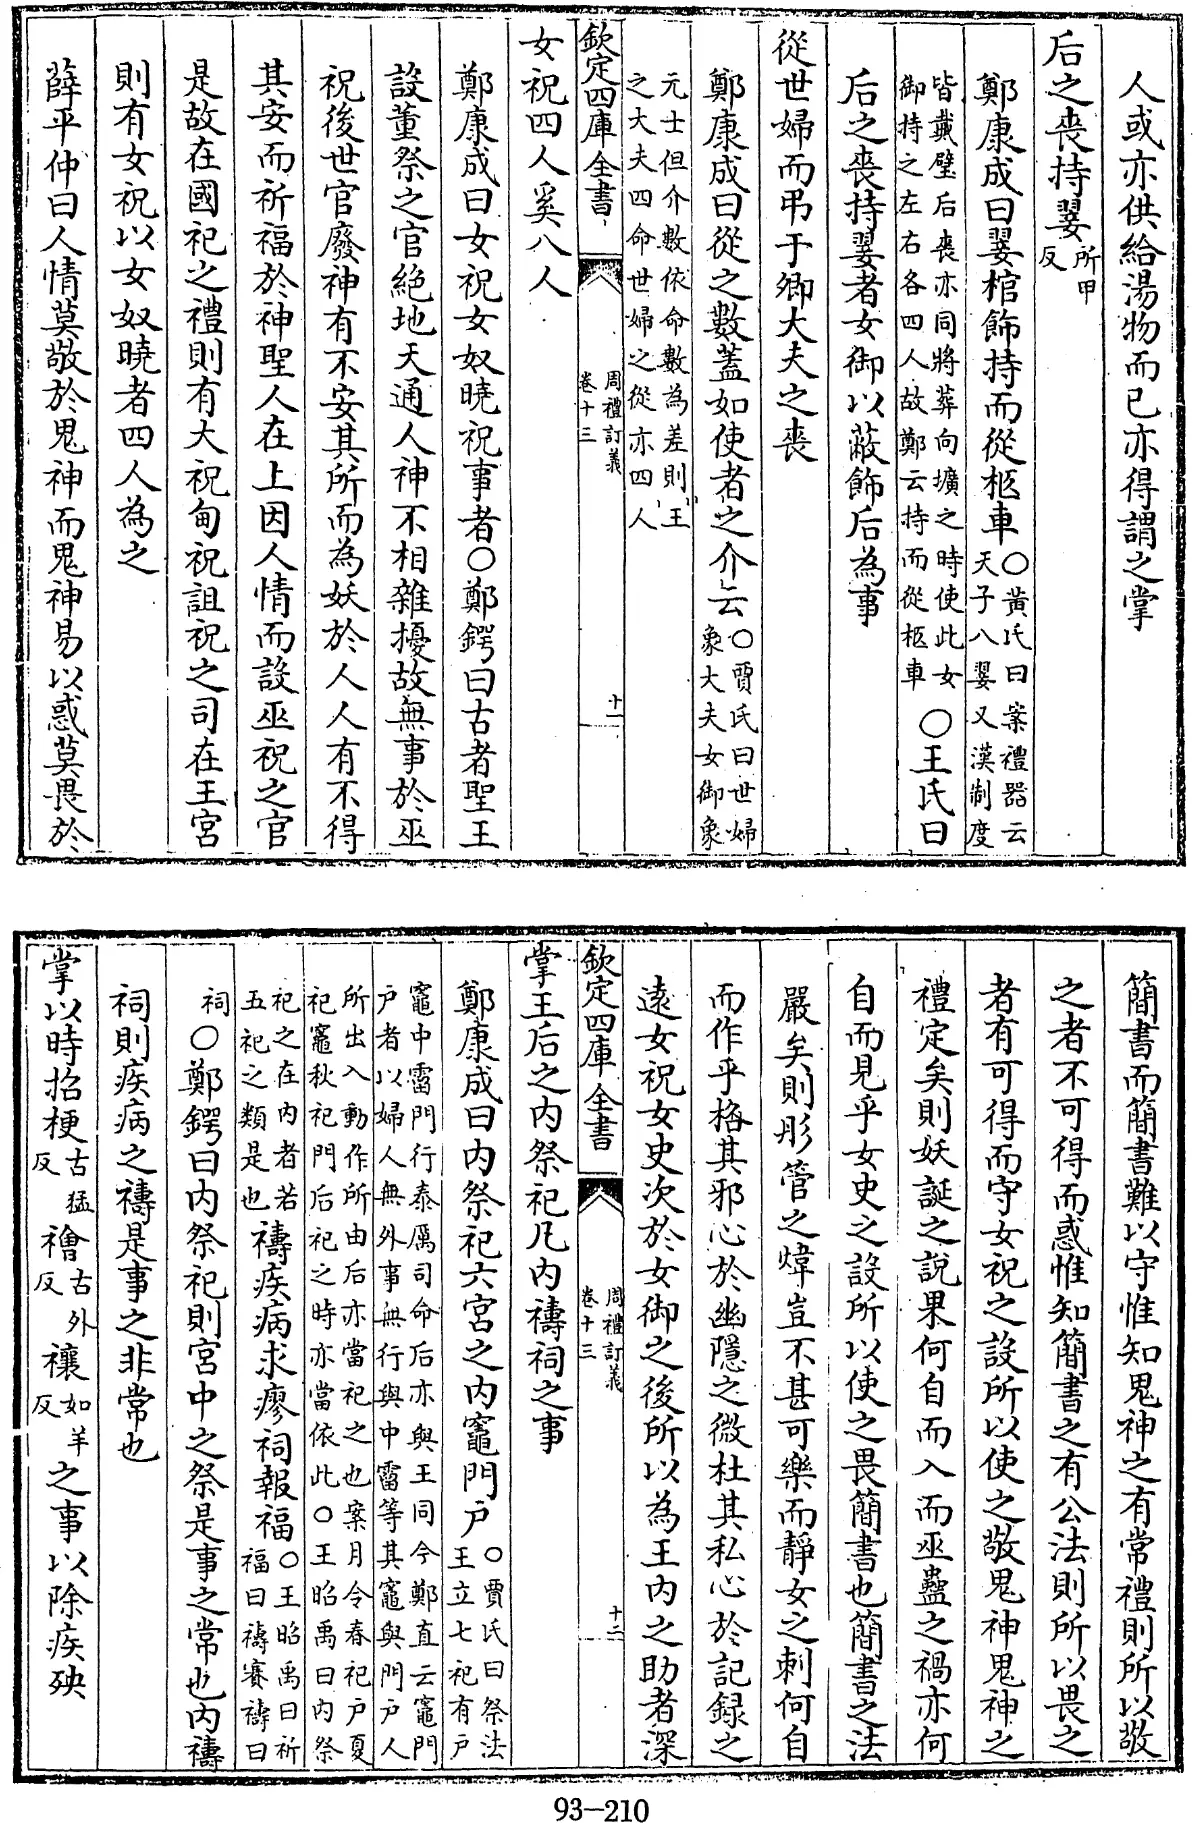 人或亦供給湯物而已亦得謂之掌
后之喪持翣所甲反
鄭康成曰翣棺飾持而從柩車○黃氏曰案禮器云天子八翣又漢制度
皆戴璧后喪亦同將葬向壙之時使此女御持之左右各四人故鄭云持而從柩車○王氏曰
后之喪持翣者女御以蔽飾后為事
從世婦而弔于卿大夫之喪
鄭康成曰從之數蓋如使者之介云○賈氏曰世婦象大夫女御象
元士但介數依命數為差則王之大夫四命世婦之從亦四人
欽定四庫全書
周禮訂義
卷十三
十一
女祝四人奚八人
鄭康成曰女祝女奴曉祝事者○鄭鍔曰古者聖王
設董祭之官絕地天通人神不相雜擾故無事於巫
祝後世官廢神有不安其所而為妖於人人有不得
其安而祈福於神聖人在上因人情而設巫祝之官
是故在國祀之禮則有大祝甸祝詛祝之司在王宮
則有女祝以女奴曉者四人為之
薛平仲曰人情莫敬於鬼神而鬼神易以惑莫畏於
簡書而簡書難以守惟知鬼神之有常禮則所以敬
之者不可得而惑惟知簡書之有公法則所以畏之
者有可得而守女祝之設所以使之敬鬼神鬼神之
禮定矣則妖誕之說果何自而入而巫蠱之禍亦何
自而見乎女史之設所以使之畏簡書也簡書之法
嚴矣則彤管之煒豈不甚可樂而靜女之刺何自
而作乎格其邪心於幽隱之微杜其私心於記錄之
遠女祝女史次於女御之後所以為王內之助者深
欽定四庫全書
周禮訂義
卷十三
十二
掌王后之內祭祀凡內禱祠之事
鄭康成曰內祭祀六宮之內竈門户○賈氏曰祭法王立七祀有户
竈中霤門行泰厲司命后亦與王同今鄭直云竈門户者以婦人無外事無行與中霤等其竈與門户人
所出入動作所由后亦當祀之也案月令春祀户夏祀竈秋祀門后祀之時亦當依此○王昭禹曰內祭
祀之在內者若五祀之類是也禱疾病求瘳祠報福○王昭禹曰祈福曰禱賽禱曰
祠○鄭鍔曰內祭祀則宮中之祭是事之常也內禱
祠則疾病之禱是事之非常也
掌以時招梗古猛反禬古外反禳如羊反之事以除疾殃
93-210